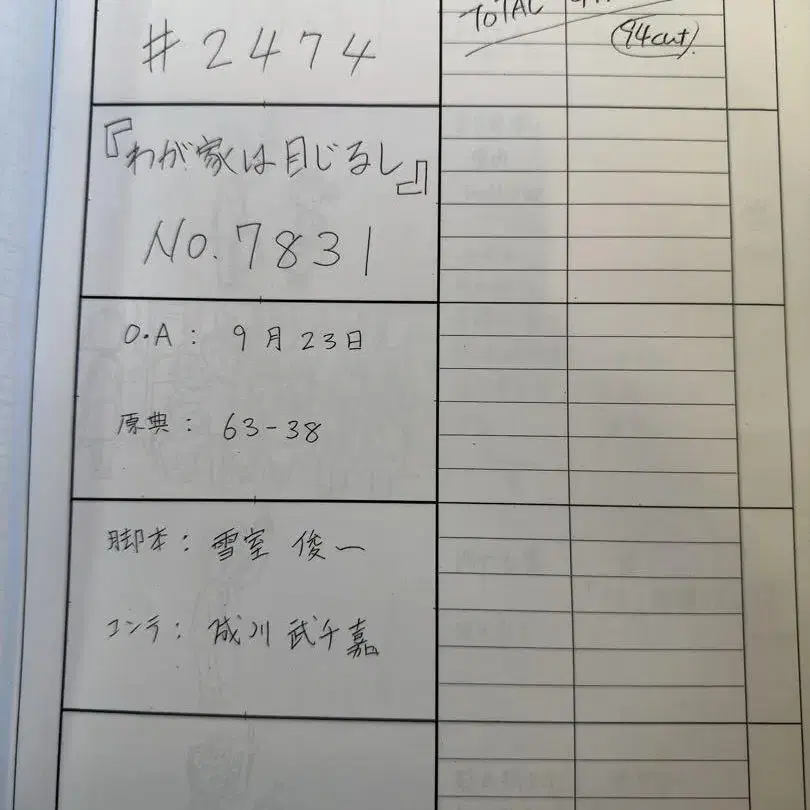 #2474
TOTAL
94cut
『わが家は目じるし』
No.7831
O.A： 9月23日
原典： 63-38
脚本： 雪室 俊一
コンテ： 成川 武千嘉